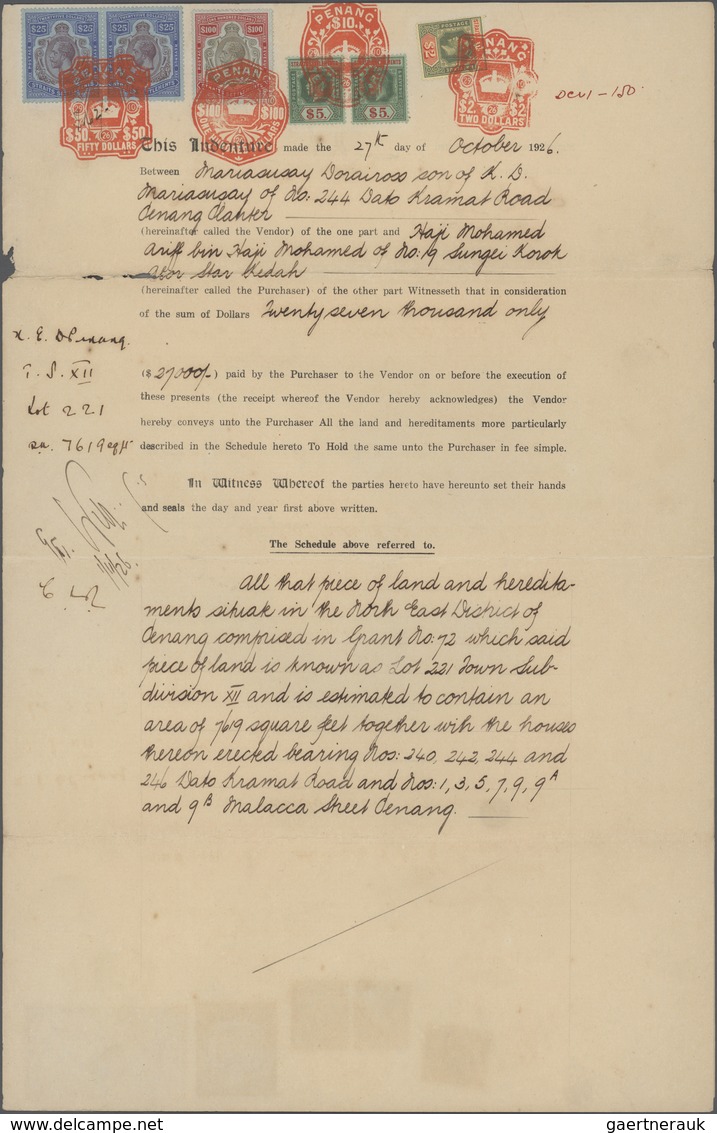 $25 $25 $25 $25 $100 $100
PENANG
$10
$5. $5.
POSTAGE
$2
PENANG
$50 $50
FIFTY DOLLARS
PENANG
$100 $100
PENANG
$2 $2
TWO DOLLARS
This Indenture made the 27th day of October 1926.
Between Mariasusay Dorairoso son of K. D.
Mariasusay of No: 244 Dato Kramat Road
Penang Planter
(hereinafter called the Vendor) of the one part and Haji Mohamed
Ariff bin Haji Mohamed of No: 19 Sungei Korok
Alor Star Kedah
(hereinafter called the Purchaser) of the other part Witnesseth that in consideration
of the sum of Dollars Twenty seven thousand only
N. E. D Penang.
T. S. XII
Lot 221
ea. 7619 sq ft
($ 27000/-) paid by the Purchaser to the Vendor on or before the execution of
these presents (the receipt whereof the Vendor hereby acknowledges) the Vendor
hereby conveys unto the Purchaser All the land and hereditaments more particularly
described in the Schedule hereto To Hold the same unto the Purchaser in fee simple.
In Witness Whereof the parties hereto have hereunto set their hands
and seals the day and year first above written.
The Schedule above referred to.
All that piece of land and heredita-
ments situate in the North East District of
Penang comprised in Grant No: 72 which said
piece of land is known as Lot 221 Town Sub-
division XII and is estimated to contain an
area of 7619 square feet together with the houses
thereon erected bearing Nos: 240, 242, 244 and
246 Dato Kramat Road and Nos: 1, 3, 5, 7, 9, 9A
and 9B Malacca Street Penang.
gaertnerauk